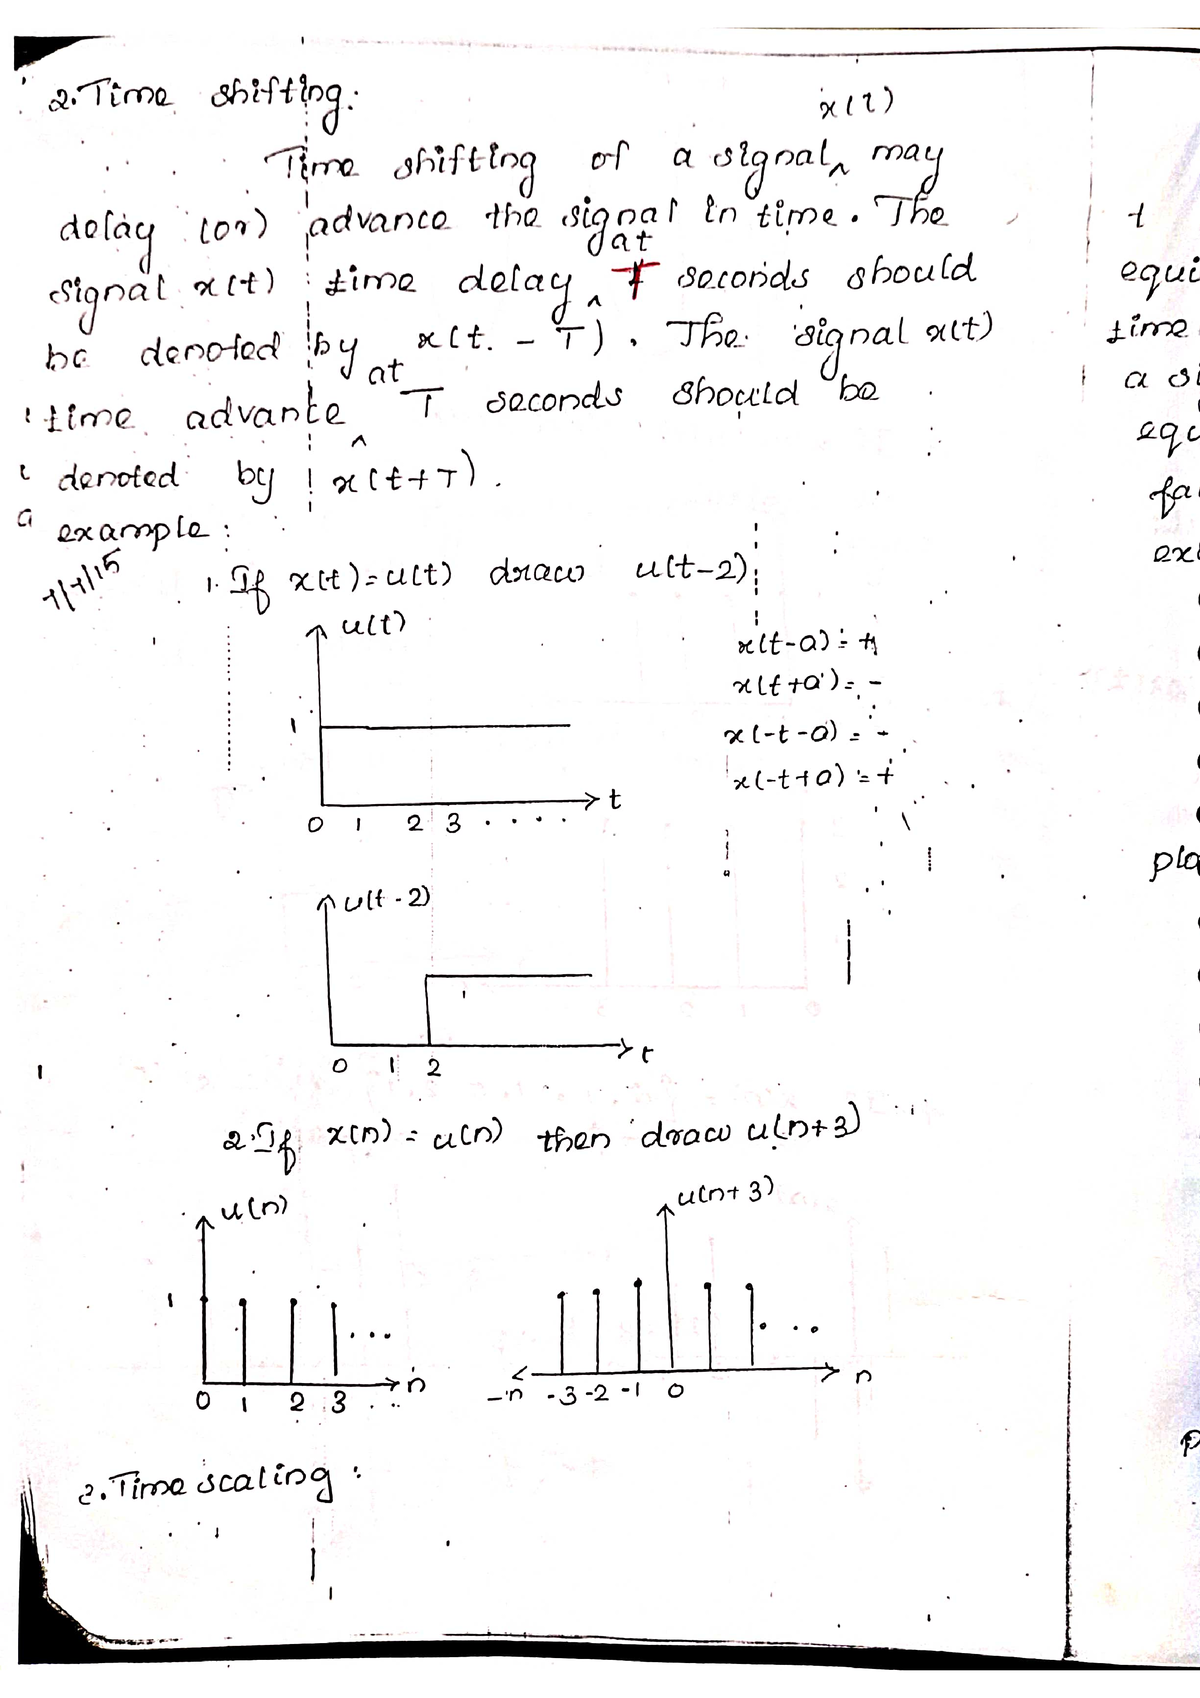 2. Time shifting:
x(t)
Time shifting of a signal ^ may
delay (or) advance the signal in time. The
at
signal x(t) time delay ^ T seconds should
be denoted by x(t - T). The signal x(t)
at
time advance ^ T seconds should be
denoted by x(t+T).
example:
1. If x(t) = u(t) draw u(t-2);
u(t)
x(t-a) = +
x(t+a) = -
1
x(-t-a) = -
x(-t+a) = +
t
0 1 2 3 . . . .
u(t-2)
1
t
0 1 2
2. If x(n) = u(n) then draw u(n+3)
u(n)
u(n+3)
1
...
...
n
n
0 1 2 3 ..
-n -3 -2 -1 0
2. Time scaling:
t
equi
time
a si
equ
fa
ex
pla
p